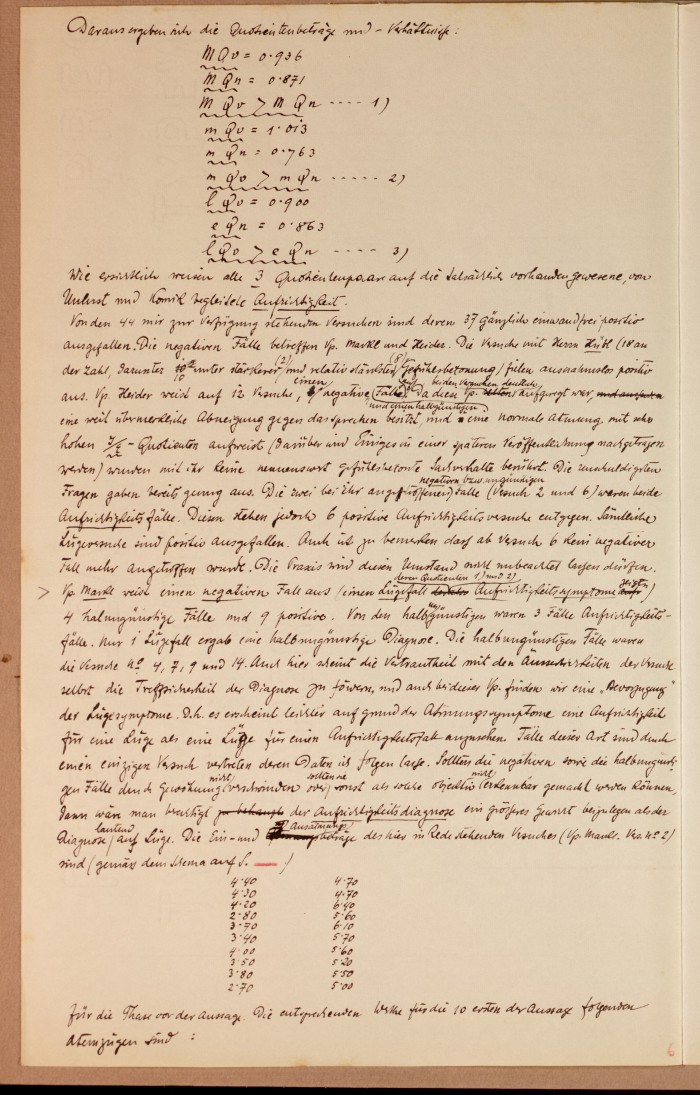 Daraus ergeben sich die Quotientenbeträge und -Verhältnisse:
M Qv = 0.936
M Qn = 0.871
M Qv > M Qn ---- 1)
m Qv = 1.013
m Qn = 0.763
m Qv > m Qn ----- 2)
l Qv = 0.900
l Qn = 0.863
l Qv > l Qn ---- 3)
Wie ersichtlich weisen alle 3 Quotientenpaare auf die tatsächlich vorhanden gewesene, von
Unlust und Komik begleitete Aufrichtigkeit.
Von den 44 mir zur Verfügung stehenden Versuchen sind deren 37 gänzlich einwandfrei positiv
ausgefallen. Die negativen Fälle betreffen Vp. Markl und Heider. Die Versuche mit Herrn (18 an
der Zahl, darunter 10 unter stärkerer (2) und relativ stärkster (8) Gefühlsbetonung) fielen ausnahmslos positiv
aus. Vp. Heider weist auf 12 Versuche, einen negativen Fall und einen halbgünstigen auf. Da diese Vp. bei beiden Versuchen deutlich aufgeregt war,
eine weit übermerkliche Abneigung gegen das Sprechen besitzt, und eine normale Atmung mit sehr
hohen - Quotienten aufweist (darüber wird Einiges in einer späteren Veröffentlichung nachgetragen
werden) wurden mit ihr keine nennenswert gefühlsbetonte Sachverhalte berührt. Die unschuldigsten
Fragen gaben bereits genug aus. Die zwei bei ihr angetroffenen negativen bzw. ungünstigen Fälle (Versuch 2 und 6) waren beide
Aufrichtigkeitsfälle. Diesen stehen jedoch 6 positive Aufrichtigkeitsversuche entgegen. Sämtliche
Lügeversuche sind positiv ausgefallen. Auch ist zu bemerken dass ab Versuch 6 kein negativer
Fall mehr angetroffen wurde. Die Praxis wird diesen Umstand nicht unbeachtet lassen dürfen.
> Vp. Markl weist einen negativen Fall aus (einen Lügefall deren Quotienten 1) und 2) Aufrichtigkeitssymptome zeigten)
4 halbungünstige Fälle und 9 positive. Von den halbungünstigen waren 3 Fälle Aufrichtigkeits-
fälle. Nur 1 Lügefall ergab eine halbungünstige Diagnose. Die halbungünstigen Fälle waren
die Versuche No. 4, 7, 9 und 14. Auch hier scheint die Vertrautheit mit den der Versuche
selbst die Treffsicherheit der Diagnose zu fördern, und auch bei dieser Vp. finden wir eine „Bevorzugung"
der Lügesymptome. D.h. es erscheint leichter auf grund der Atmungssymptome eine Aufrichtigkeit
für eine Lüge als eine Lüge für einen Aufrichtigkeitsfall anzusehen. Fälle dieser Art sind durch
einen einzigen Versuch vertreten deren Daten ich folgen lasse. Sollten die negativen sowie die halbungünsti-
gen Fälle durch Gewöhnung nicht verschwinden oder sollten sie sonst als solche objektiv nicht erkennbar gemacht werden können,
dann wäre man berechtigt der Aufrichtigkeitsdiagnose ein größeres Gewicht beizulegen als der
Diagnose lautend auf Lüge. Die Ein- und Ausatmungsbeträge des hier in Rede stehenden Versuches (Vp. Markl. Vers. No. 2)
sind (gemäss dem Schema auf S. )
4.40 4.70
4.30 4.70
4.20 6.40
2.80 5.60
3.70 6.10
3.40 5.70
4.00 5.60
3.50 5.20
3.80 5.50
2.70 5.00
für die Phase vor der Aussage. Die entsprechenden Werte für die 10 ersten der Aussage folgenden
Atemzügen sind :
6